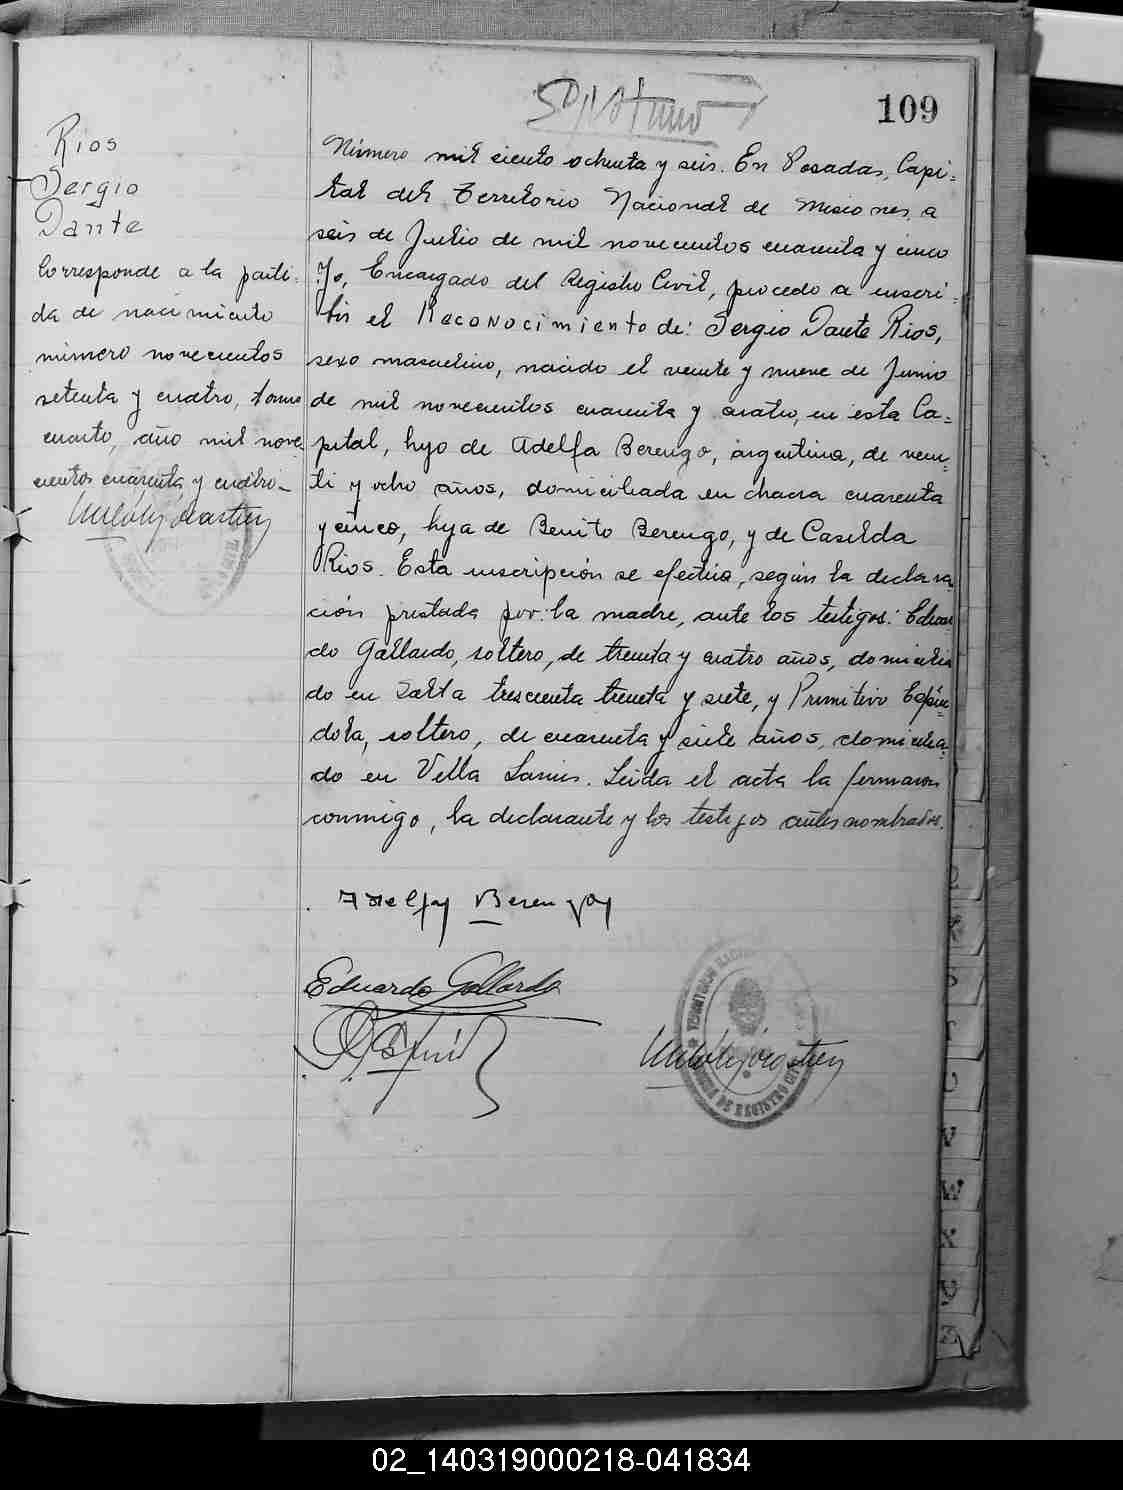 109
Rios
Sergio
Dante
Corresponde a la parti-
da de nacimiento
número novecientos
setenta y cuatro, tomo
cuarto, año mil nove-
cientos cuarenta y cuatro_
Número mil ciento ochenta y seis. En Posadas, Capi=
tal del Territorio Nacional de Misiones, a
seis de Julio de mil novecientos cuarenta y cinco
Yo, Encargado del Registro Civil, procedo a inscri=
bir el Reconocimiento de: Sergio Dante Rios,
sexo masculino, nacido el veinte y nueve de Junio
de mil novecientos cuarenta y cuatro, en esta Ca=
pital, hijo de Adelfa Berengo, argentina, de vein=
ti y ocho años, domiciliada en chacra cuarenta
y cinco, hija de Benito Berengo, y de Casilda
Rios. Esta inscripción se efectúa, según la declara
ción prestada por la madre, ante los testigos: Eduar
do Gallardo, soltero, de treinta y cuatro años, domicilia
do en Salta trescienta treinta y siete, y Primitivo Espín=
dola, soltero, de cuarenta y siete años, domicilia=
do en Villa Lanus. Leida el acta la firmaron
conmigo, la declarante y los testigos antes nombrados.
Adelfa Berengo
Eduardo Gallardo
TERRITORIO NACIONAL
DE REGISTRO CIVIL
V
W
X
Y
Z
02_140319000218-041834